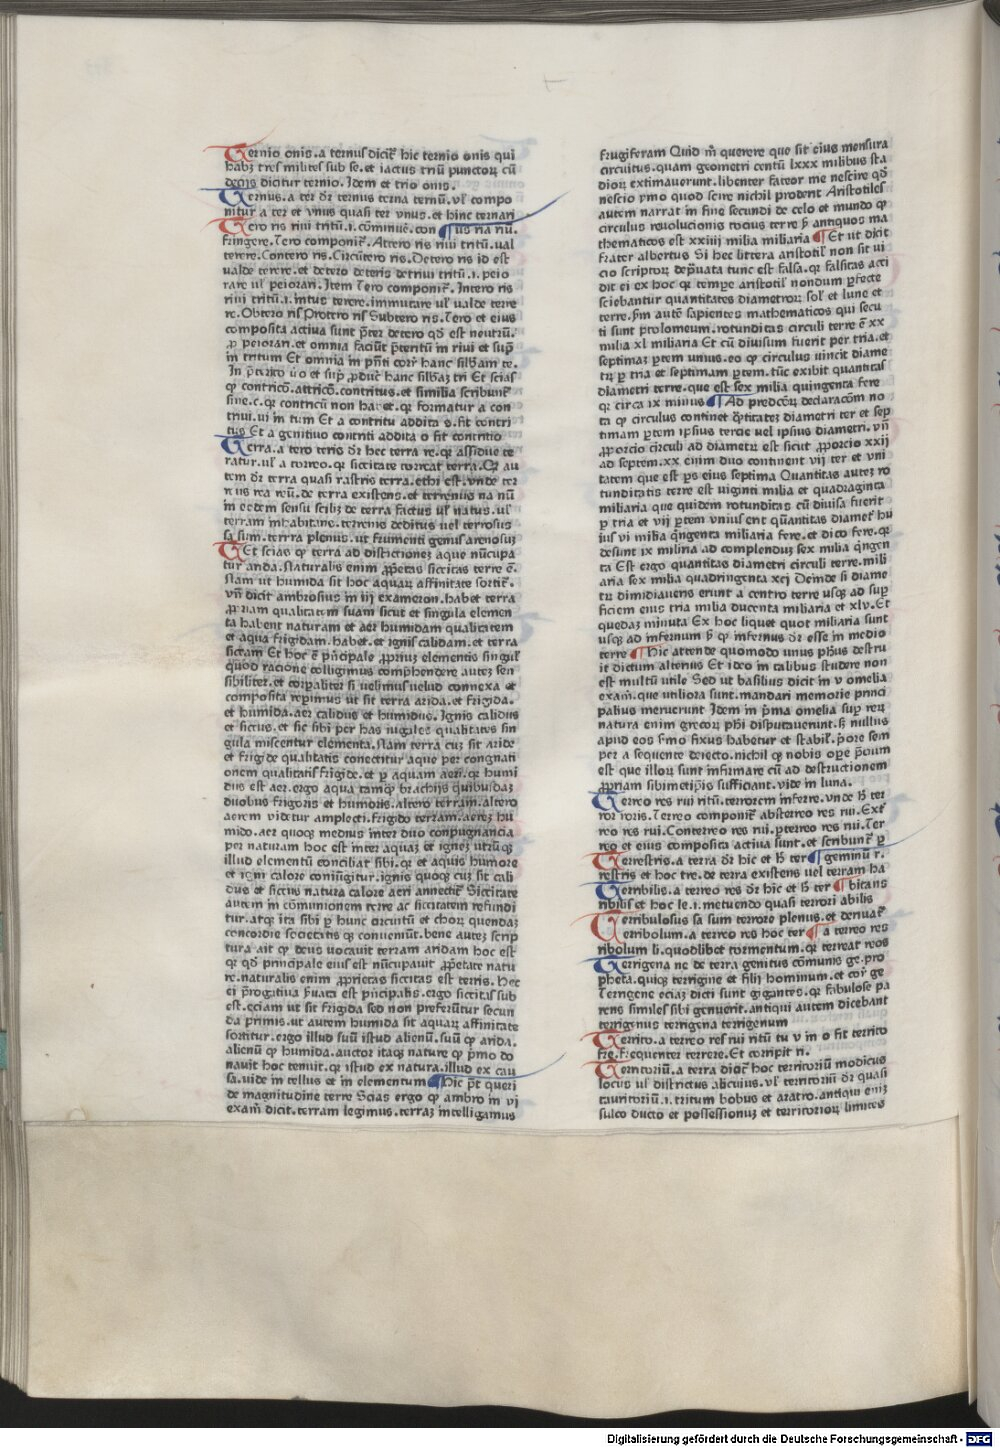 Ternio onis.a ternus dicit᷑ hic ternio onis qui
habꝫ tres milites sub se.et iactus triū punctorꝝ cū
decijs dicitur ternio.Idem et trio onis.
Ternus.a ter dr̄ ternus terna ternū.vl̓ compo
nitur a ter et vnus quasi ter vnus.et hinc ternari
Tero ris riui tritū.i.cōminue.con ¶us ria riū.
fringere.Tero componit᷑.Attero ris riui tritū.ual
terere.Contero ris.Circūtero ris.Detero ris id est
valde terere.et detero deteris detriui tritū.i.peio
rare ul̓ peiorari.Item Tero componit᷑.Intero ris
riui tritū.i.intus terere.immutare ul̓ valde terre
re.Obtero ris Protero ris Subtero ris.Tero et eius
composita actiua sunt p̄ter detero qđ est neutrū.
ꝓ peiorari.et omnia faciūt p̄teritū in riui et sup̄
in tritum Et omnia in pn̄ti corr̓ hanc silbam te.
In p̄terito ūo et sup̄ ꝓduc̄t hanc silbaꝫ tri Et scias
ꝙ contricō.attricō.contritus.et similia scribunt᷑
sine.c.qꝛ contricū non habet.qꝛ formatur a con
triui.ui in tum Et a contritu addita s.fit contri
tus Et a genitiuo contriti addita o fit contritio
Terra.a tero teris dr̄ hec terra re.qꝛ assidue te
ratur.ul̓ a torreo.qꝛ siccitate torreat terra.Qꝛ au
tem dr̄ terra quasi rastris terra.ethi est.vnde ter
re us rea reū.de terra existens.et terrenus na nū
in eodem sensu scilꝫ de terra factus ul̓ natus.ul̓
terram inhabitans.terrenis deditus uel terrosus
sa sum.terrra plenus.ut frumenti genus arenosuꝫ
¶Et scias ꝙ terra ad districtioneꝫ aque nūcupa
tur arida.Naturalis enim ꝓp̄etas siccitas terre ē.
Nam ut humida sit hoc aquaꝝ affinitate sortit᷑.
vn̄ dicit ambrosius in iij exameron.habet terra
ꝓpriam qualitatem suam sicut et singula elemen
ta habent naturam et aer humidam qualitatem
et aqua frigidam.habet.et ignis calidam.et terra
siccam Et hoc ē pn̄cipale ꝓprius elementis singul̓
quod racione colligimus comp̄hendere auteꝫ sen
sibiliter.et corꝑaliter si uelimus uelud connexa et
composita reperimus ut sit terra arida.et frigida.
et humida.aer calidus et humidus.Ignis calidus
et siccus.et sic sibi per has iugales qualitates sin
gula miscentur elementa.Nam terra cuꝫ sit aride
et frigide qualitatis conectitur aque per congnati
onem qualitatis frigide.et ꝑ aquam aeri.qꝛ humi
dus est aer.ergo aqua tamqꝫ brachijs quibusdaꝫ
duobus frigoris et humoris.altero terram.altero
aerem videtur amplecti.frigido terram.aereꝫ hu
mido.aer quoqꝫ medius inter duo conpugnancia
per naturam hoc est inter aquaꝫ et igneꝫ utrūqꝫ
illud elementū conciliat sibi.qꝛ et aquis humore
et igni calore coniūgitur.ignis quoqꝫ cuꝫ sit cali
dus et siccus natura calore aeri annectit᷑ Siccitate
autem in cōmunionem terre ac siccitatem refundi
tur.atqꝫ ita sibi ꝑ hunc circuitū et choꝝ quendaꝫ
concordie societatis qꝫ conueniūt.bene auteꝫ scrip
tura ait ꝙ deus uocauit terram aridam hoc est
qꝛ qđ principale eius est nūcupauit ꝓp̄etate natu
re.naturalis enim ꝓprietas siccitas est terris.Hec
ei p̄rogatiua p̄uata est pn̄cipalis.ergo siccitas sub
est.eciam ut sit frigida sed non preferūtur secun
da primis.ut autem humida sit aquaꝝ affinitate
sortitur.ergo illud suū istud alienū.suū ꝙ arida.
alienū ꝙ humida.auctor itaqꝫ nature ꝙ p̄mo do
nauit hoc tenuit.qꝛ istud ex natura.illud ex cau
sa.uide in tellus et in elementum ¶Hic p̄t queri
de magnitudine terre Scias ergo ꝙ ambro in vj
exam̄ dicit.terram legimus.terraꝫ intelligamus
frugiferam Quid m̄ querere que sit eius mensura
circuitus.quam geometri centū lxxx milibus sta
dioꝝ extimauerunt.libenter fateor me nescire qđ
nescio ymo quod scire nichil prodent Aristotiles
autem narrat in fine secundi de celo et mundo ꝙ
circulus reuolucionis tocius terre p̄ antiquos ma
thematicos est xxiiij milia miliaria ¶Et ut dixit
frater albertus Si hec littera aristotil̓ non sit ui
cio scriptoꝝ dep̄uata tunc est falsa.qꝛ falsitas acci
dit ei ex hoc ꝙ tempe aristotil̓ nondum ꝑfecte
sciebantur quantitates diametroꝝ sol̓ et lune et
terre.p̄m autē sapientes mathematicos qui secu
ti sunt ptolomeum.rotunditas circuli terre ē xx
milia xl miliaria Et cū diuisum fuerit per tria.et
septimaꝫ ꝑtem unius.eo ꝙ circulus uincit diame
tꝝ ꝑ tria et septimam ꝑtem.tūc exibit quantitas
diametri terre.que est sex milia quingenta fere
qꝛ circa ix minus ¶Ad predcōꝝ declaracōm no
ta ꝙ circulus continet q̄titateꝫ diametri ter et sep
timam ꝑtem ipsius tercie uel ipsius diametri.vn̄
ꝓporcio circuli ad diametꝝ est sicut ꝓporcio xxij
ad septem.xx enim duo continent vij ter et vni
tatem que est ꝑs eius septima Quantitas auteꝫ ro
tunditatis terre est uiginti milia et quadraginta
miliaria que quidem rotunditas cū diuisa fuerit
ꝑ tria et vij ꝑtem vnius ent qūantitas diamet᷑ hu
ius vi milia q̄ngenta miliaria fere.et dico fere.qꝛ
desunt ix miliria ad complenduꝫ sex milia q̄ngen
ta Est ergo quantitas diametri circuli terre.mili
aria sex milia quadringenta xcj Deinde si diame
tꝝ dimidiauens erunt a centro terre usqꝫ ad sup̄
ficiem eius tria milia ducenta miliaria et xlv.Et
quedaꝫ minuta Ex hoc liquet quot miliaria sunt
usqꝫ ad infernum p̄ ꝙ infernus dr̄ esse in medio
terre ¶Hic attende quomodo unus ph̄us destru
it dictum alterius Et ideo in talibus studere non
est multū utile Sed ut basilius dicit in v omelia
exam̄.que utiliora sunt.mandari memorie princi
palius meruerunt Idem in p̄ma omelia sup̄ reꝝ
natura enim grecoꝝ ph̄i disputauerunt.ꝫ nullus
apud eos sermo fixus habetur et stabil̓.p̄ore sem
per a sequente deiecto.nichil qꝫ nobis oꝑe p̄cium
est que illoꝝ sunt infirmare cū ad destructionem
ꝓpriam sibimetip̄is sufficiant.vide in luna.
Terreo res rui ritū.terrorem inferre.vnde h̄ ter
ror roris.Terreo componit᷑ absterreo res rui.Ext̓
reo res rui.Conterreo res rui.ꝑterreo res rui.Ter
reo et eius composita actiua sunt.et scribunt᷑ ꝑ
Terrestris.a terra dr̄ hic et h̄ ter ¶geminū r.
restris et hoc tre.de terra existens uel terram ha
Terribilis.a terreo res dr̄ hic et h̄ ter ¶bitans
ribilis et hoc le.i.metuendo quasi terrori abilis
Terribulosus sa sum terrore plenus.et deriuat᷑
Terribolum.a terreo res hoc ter ¶a terreo res
ribolum li.quodlibet tormentum.qꝛ terreat reos
Terrigena ne de terra genitus cōmunis ge.pro
pheta.quiqꝫ terrigine et filij hominum.et cor̓ ge
Terrigene eciaꝫ dicti sunt gigantes.qꝛ fabulose pa
rens similes sibi genuerit.antiqui autem dicebant
terrigenus terrigena terrigenum
Territo.a terreo res rui ritū tu v in o fit territo
fre.frequenter terrere.Et corripit ri.
Territoriū.a terra dicit᷑ hoc territoriū modicus
locus ul̓ districtus alicuius.vl̓ territoriū dr̄ quasi
tauritoriū.i.tritum bobus et aratro.antiqui enīꝫ
sulco ducto et possessionuꝫ et territorioꝝ limites
Digitalisierung gefördert durch die Deutsche Forschungsgemeinschaft - DFG